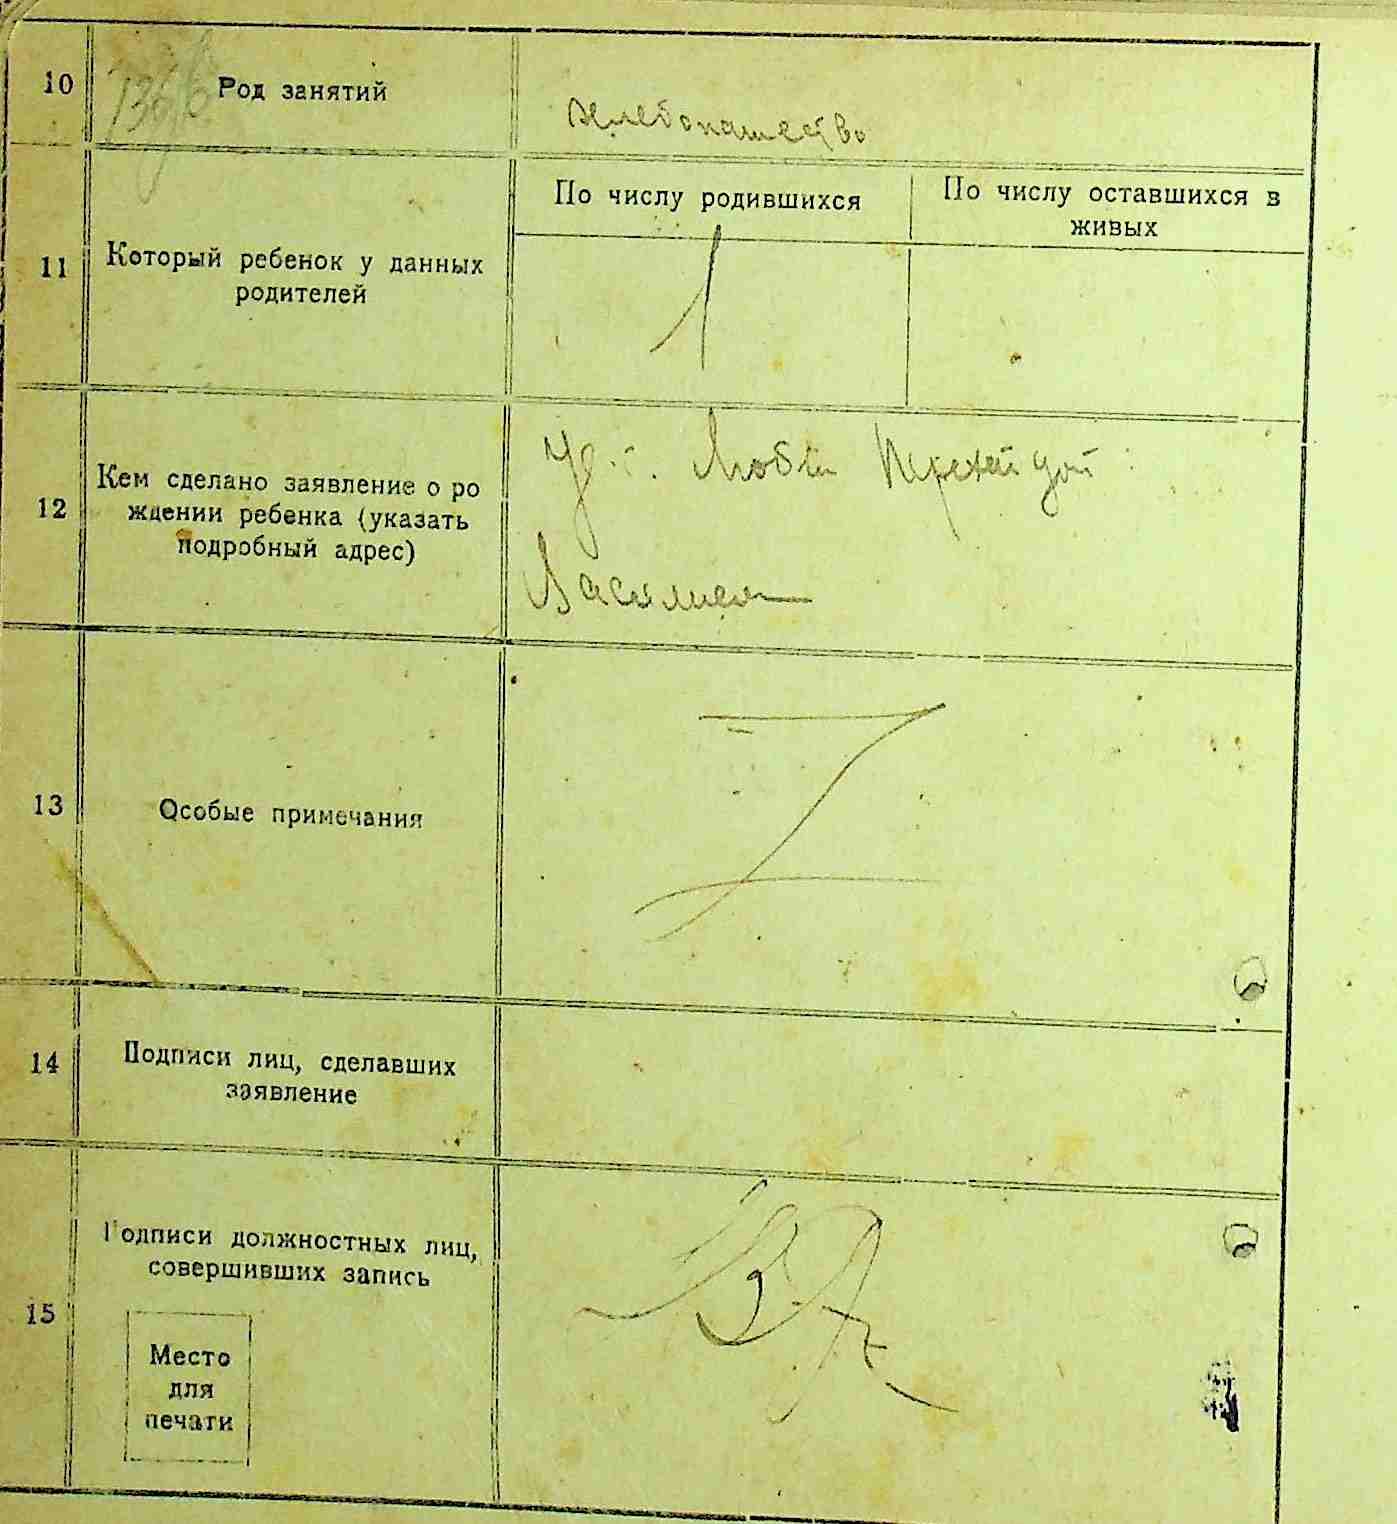 10 Род занятий
хлебопашество
11 Который ребенок у данных
родителей
По числу родившихся
По числу оставшихся в
живых
1
12 Кем сделано заявление о ро
ждении ребенка (указать
подробный адрес)
13 Особые примечания
14 Подписи лиц, сделавших
заявление
15 Подписи должностных лиц,
совершивших запись
Место
для
печати